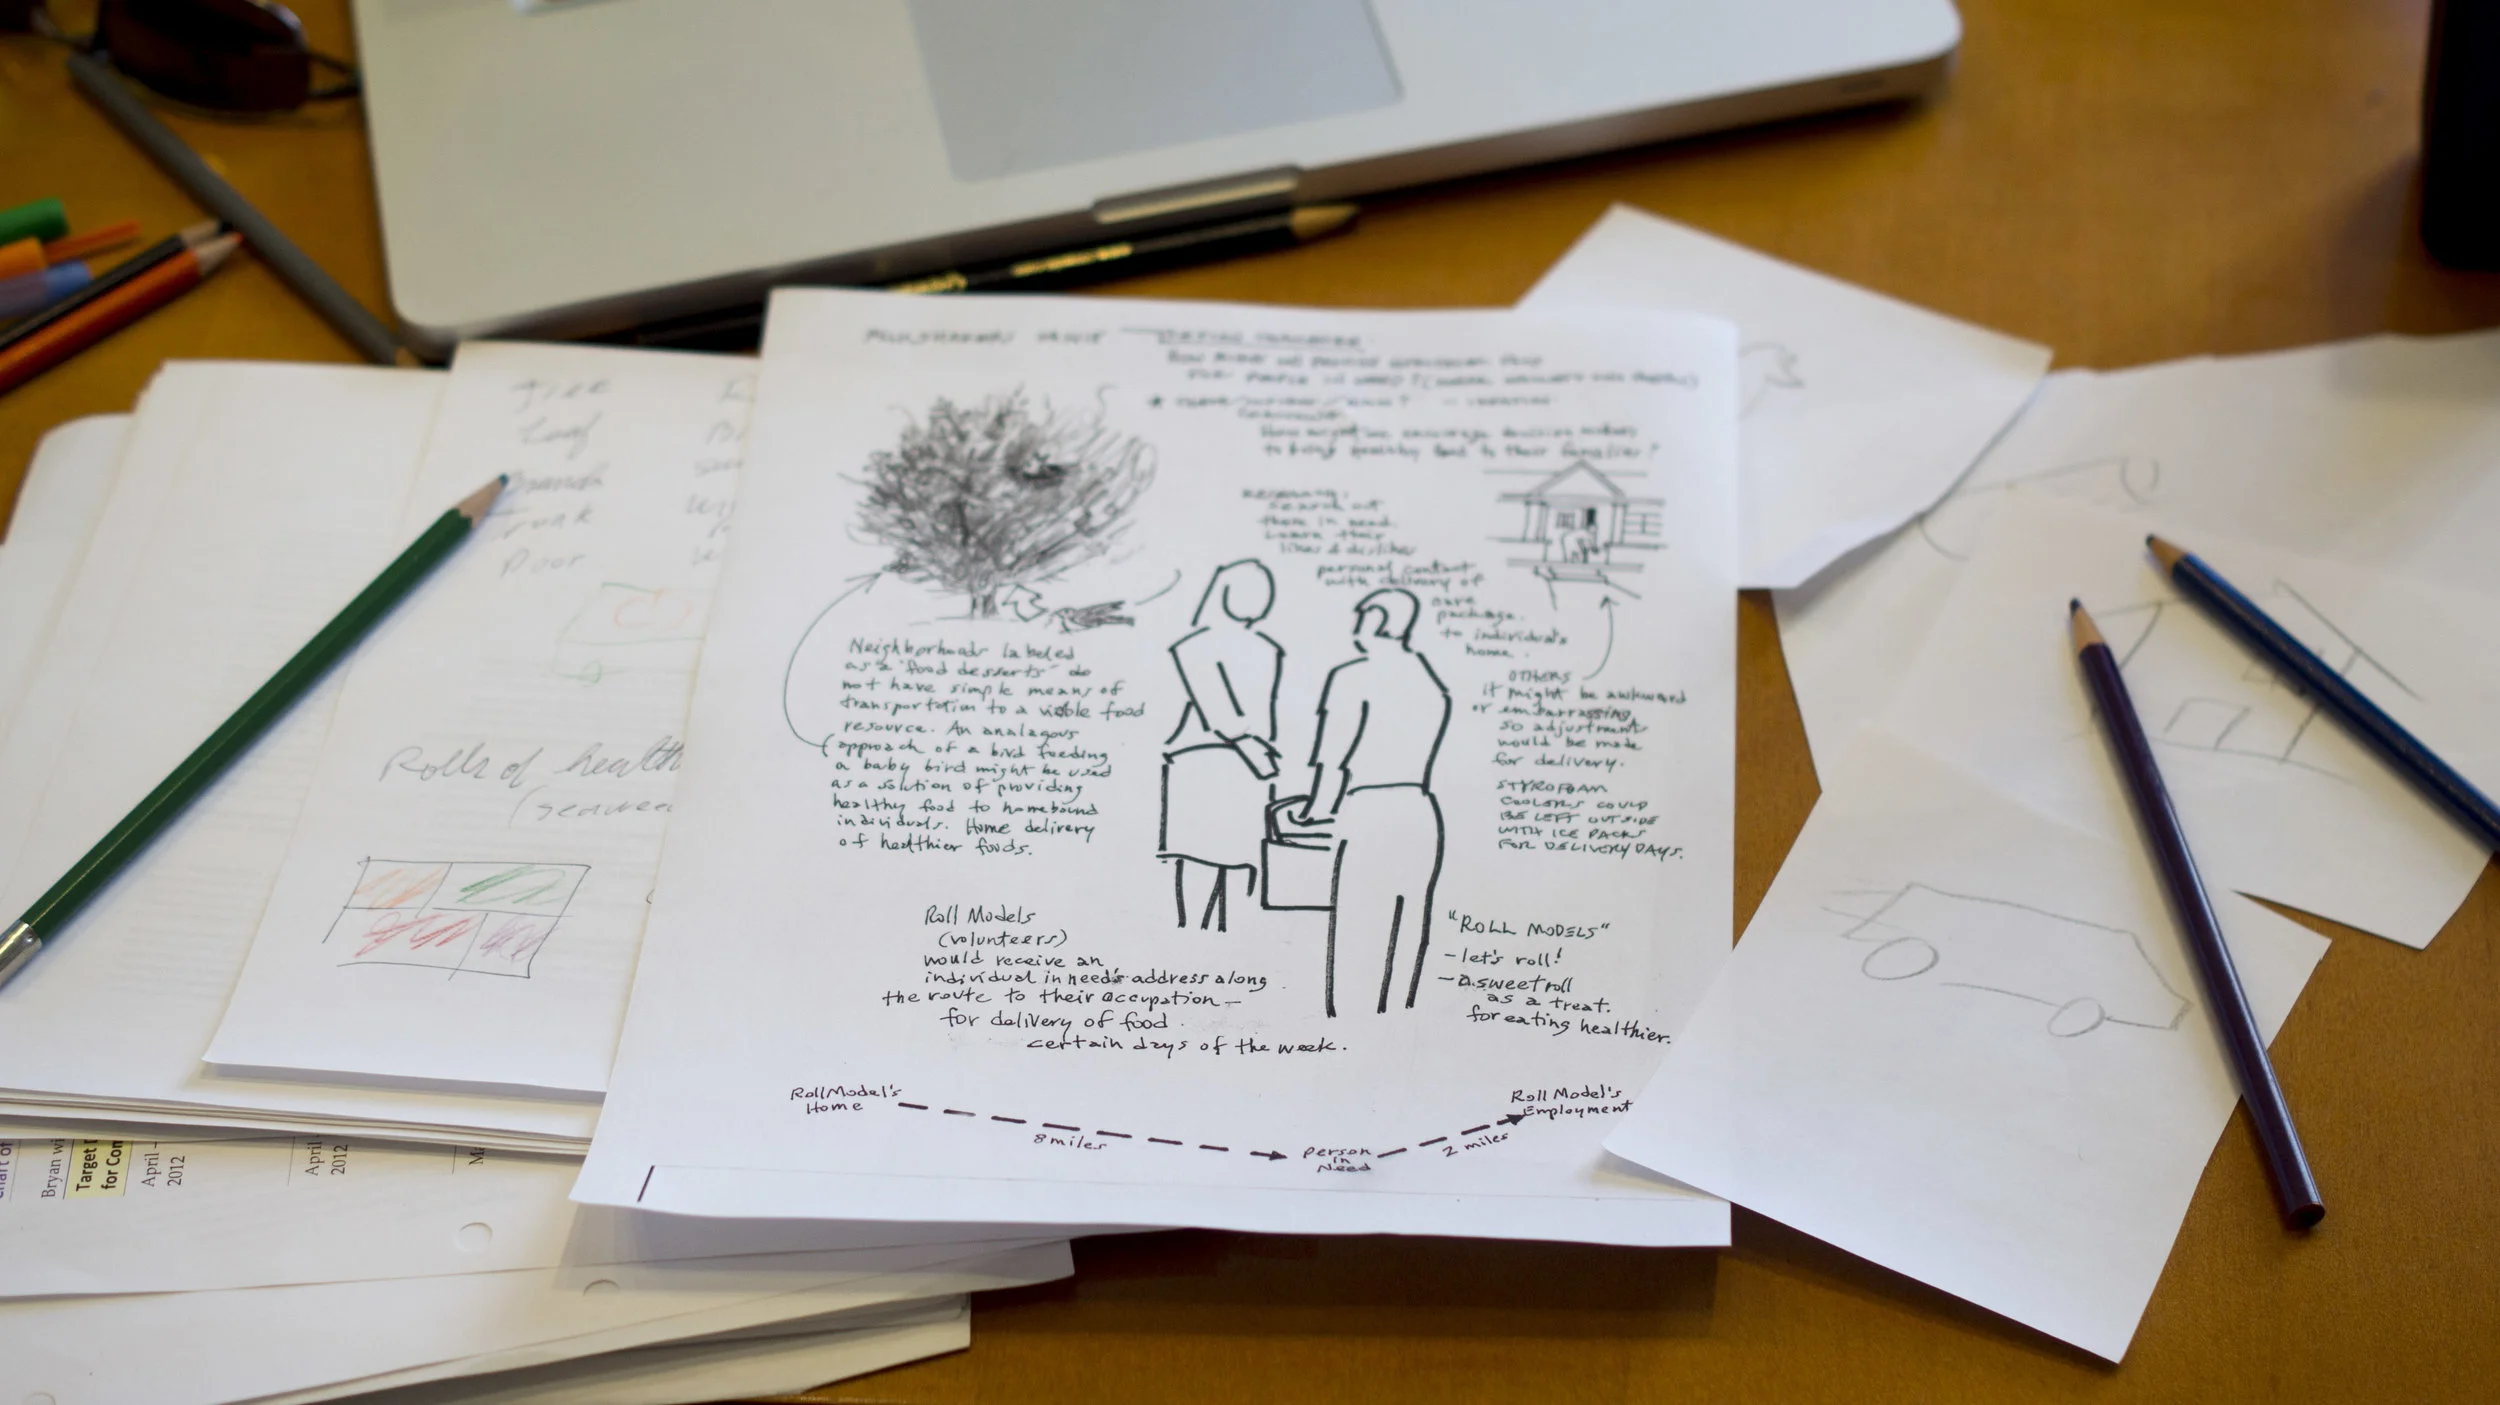 How might we encourage decision makers
to bring healthy food to their families?
search out
them in need.
Learn their
likes & dislikes
personal contact
with delivery of
care
package
to individual's
home.
Neighborhoods labeled
as a "food desserts" do
not have simple means of
transportation to a viable food
resource. An analagous
approach of a bird feeding
a baby bird might be used
as a solution of providing
healthy food to homebound
individuals. Home delivery
of healthier foods.
OTHERS
it might be awkward
or embarrassing
so adjustments
would be made
for delivery.
STYROFOAM
COOLERS COULD
BE LEFT OUTSIDE
WITH ICE PACKS
FOR DELIVERY DAYS.
Roll Models
(volunteers)
would receive an
individual in need's address along
the route to their occupation —
for delivery of food
certain days of the week.
"ROLL MODELS"
- let's roll!
- a sweet roll
as a treat.
for eating healthier.
Roll Model's
Home
8 miles
Person
in
Need
2 miles
Roll Model's
Employment
Tree
Leaf
Branch
Trunk
Door
Rolls of health
(seaweed
Bryan wi
Target
for Con
April -
2012
April
2012